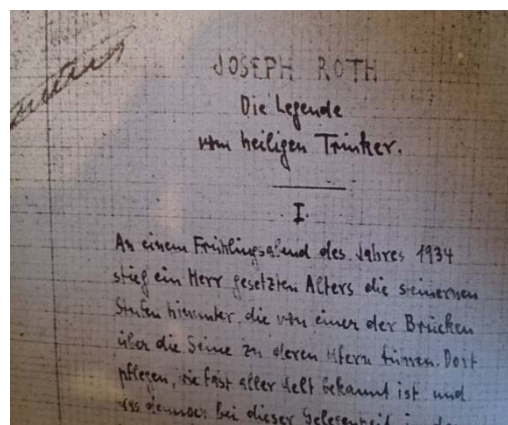 JOSEPH ROTH
Die Legende
vom heiligen Trinker.
I.
An einem Frühlingsabend des Jahres 1934
stieg ein Herr gesetzten Alters die steinernen
Stufen hinunter, die von einer der Brücken
über die Seine zu deren Ufern führen. Dort
pflegen, wie fast aller Welt bekannt ist und
was dennoch bei dieser Gelegenheit in